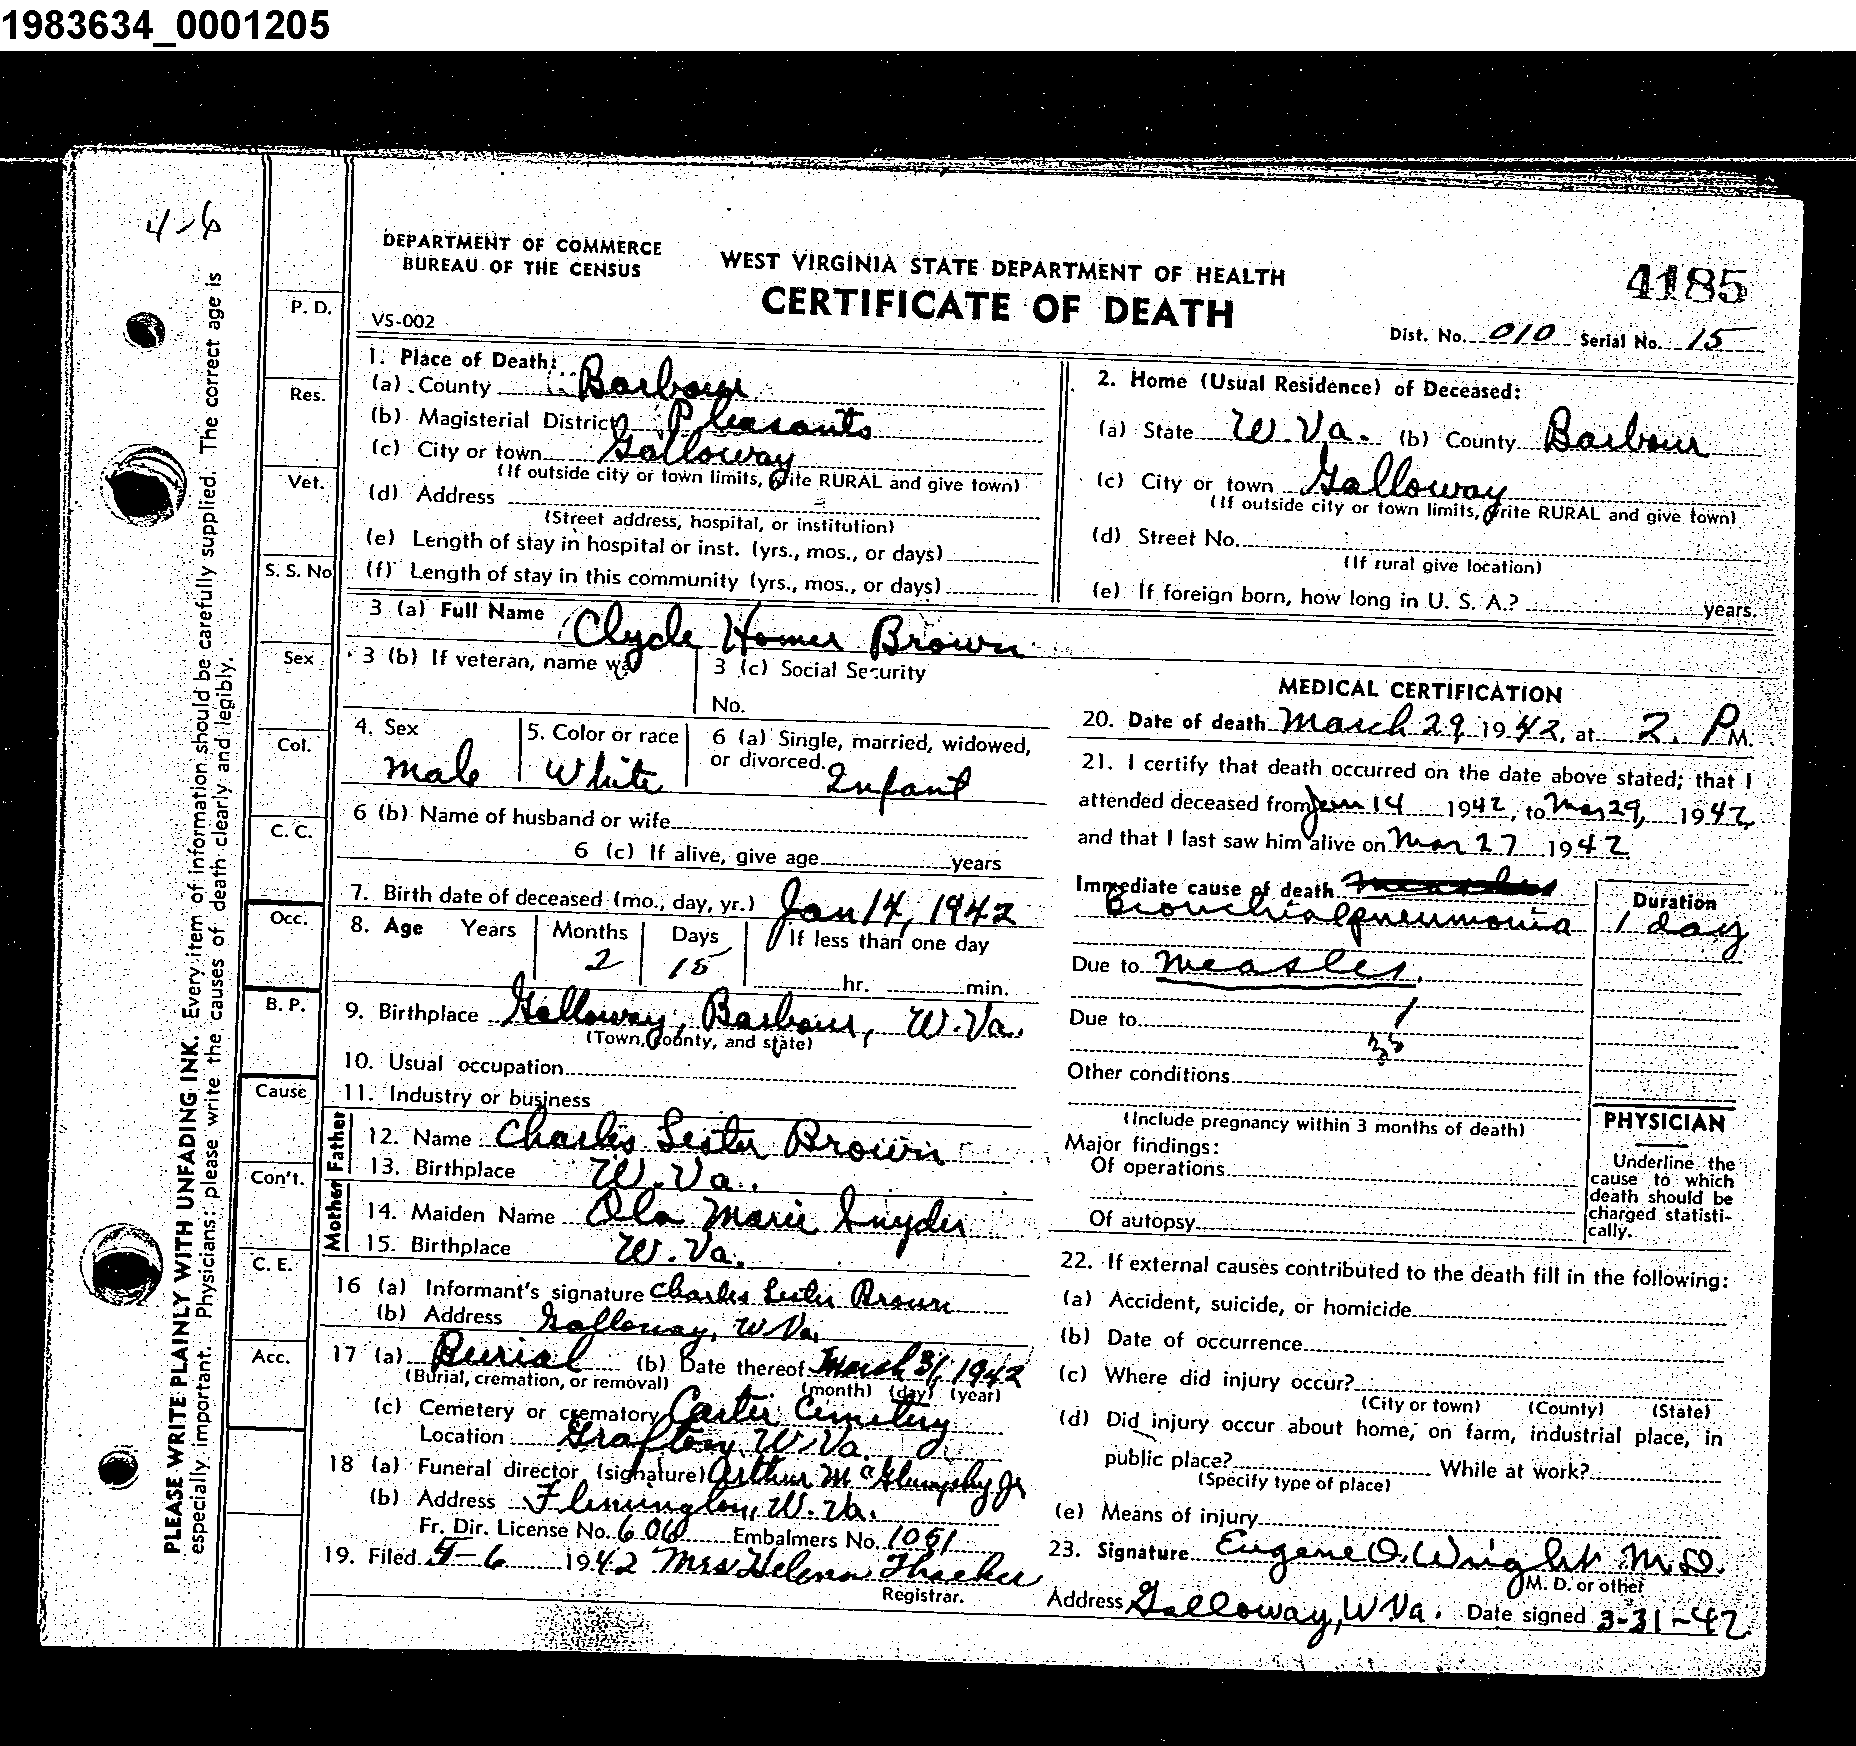 1983634_0001205
4-6
PLEASE WRITE PLAINLY WITH UNFADING INK. Every item of information should be carefully supplied. The correct age is
especially important. Physicians: please write the causes of death clearly and legibly.
P. D.
Res.
Vet.
S. S. No
Sex
Col.
C. C.
Occ.
B. P.
Cause
Con't.
C. E.
Acc.
DEPARTMENT OF COMMERCE
BUREAU OF THE CENSUS
VS-002
WEST VIRGINIA STATE DEPARTMENT OF HEALTH
CERTIFICATE OF DEATH
4185
Dist. No. 010 Serial No. 15
1. Place of Death:
(a) County Barbour
(b) Magisterial District Pleasants
(c) City or town Galloway
(If outside city or town limits, write RURAL and give town)
(d) Address
(Street address, hospital, or institution)
(e) Length of stay in hospital or inst. (yrs., mos., or days)
(f) Length of stay in this community (yrs., mos., or days)
2. Home (Usual Residence) of Deceased:
(a) State W. Va. (b) County Barbour
(c) City or town Galloway
(If outside city or town limits, write RURAL and give town)
(d) Street No.
(If rural give location)
(e) If foreign born, how long in U. S. A.? years.
3 (a) Full Name Clyde Homer Brown
3 (b) If veteran, name war
3 (c) Social Security
No.
4. Sex male
5. Color or race White
6 (a) Single, married, widowed,
or divorced. Infant
6 (b) Name of husband or wife
6 (c) If alive, give age years
7. Birth date of deceased (mo., day, yr.) Jan 14, 1942
8. Age Years Months 2 Days 15 If less than one day
hr. min.
9. Birthplace Galloway, Barbour, W. Va.
(Town, county, and state)
10. Usual occupation
11. Industry or business
Father
12. Name Charles Lester Brown
13. Birthplace W. Va.
Mother
14. Maiden Name Ola Marie Snyder
15. Birthplace W. Va.
16 (a) Informant's signature Charles Lester Brown
(b) Address Galloway, W Va.
17 (a) Burial (b) Date thereof March 31, 1942
(Burial, cremation, or removal) (month) (day) (year)
(c) Cemetery or crematory Carter Cemetery
Location Grafton, W. Va.
18 (a) Funeral director (signature) Arthur Jr
(b) Address Flemington, W. Va.
Fr. Dir. License No. 606 Embalmers No. 1051
19. Filed 4-6 1942 Mrs Helena Thacker
Registrar.
MEDICAL CERTIFICATION
20. Date of death March 29, 1942, at 2. P M.
21. I certify that death occurred on the date above stated; that I
attended deceased from Jan 14 1942, to Mar 29, 1942
and that I last saw him alive on Mar 27 1942
Immediate cause of death measles
Bronchial pneumonia
Duration
1 day
Due to measles.
Due to 1
38
Other conditions
(Include pregnancy within 3 months of death)
Major findings:
Of operations
Of autopsy
PHYSICIAN
Underline the
cause to which
death should be
charged statisti-
cally.
22. If external causes contributed to the death fill in the following:
(a) Accident, suicide, or homicide
(b) Date of occurrence
(c) Where did injury occur?
(City or town) (County) (State)
(d) Did injury occur about home, on farm, industrial place, in
public place? While at work?
(Specify type of place)
(e) Means of injury
23. Signature Eugene O. Wright M.D.
M. D. or other
Address Galloway, W Va. Date signed 3-31-42